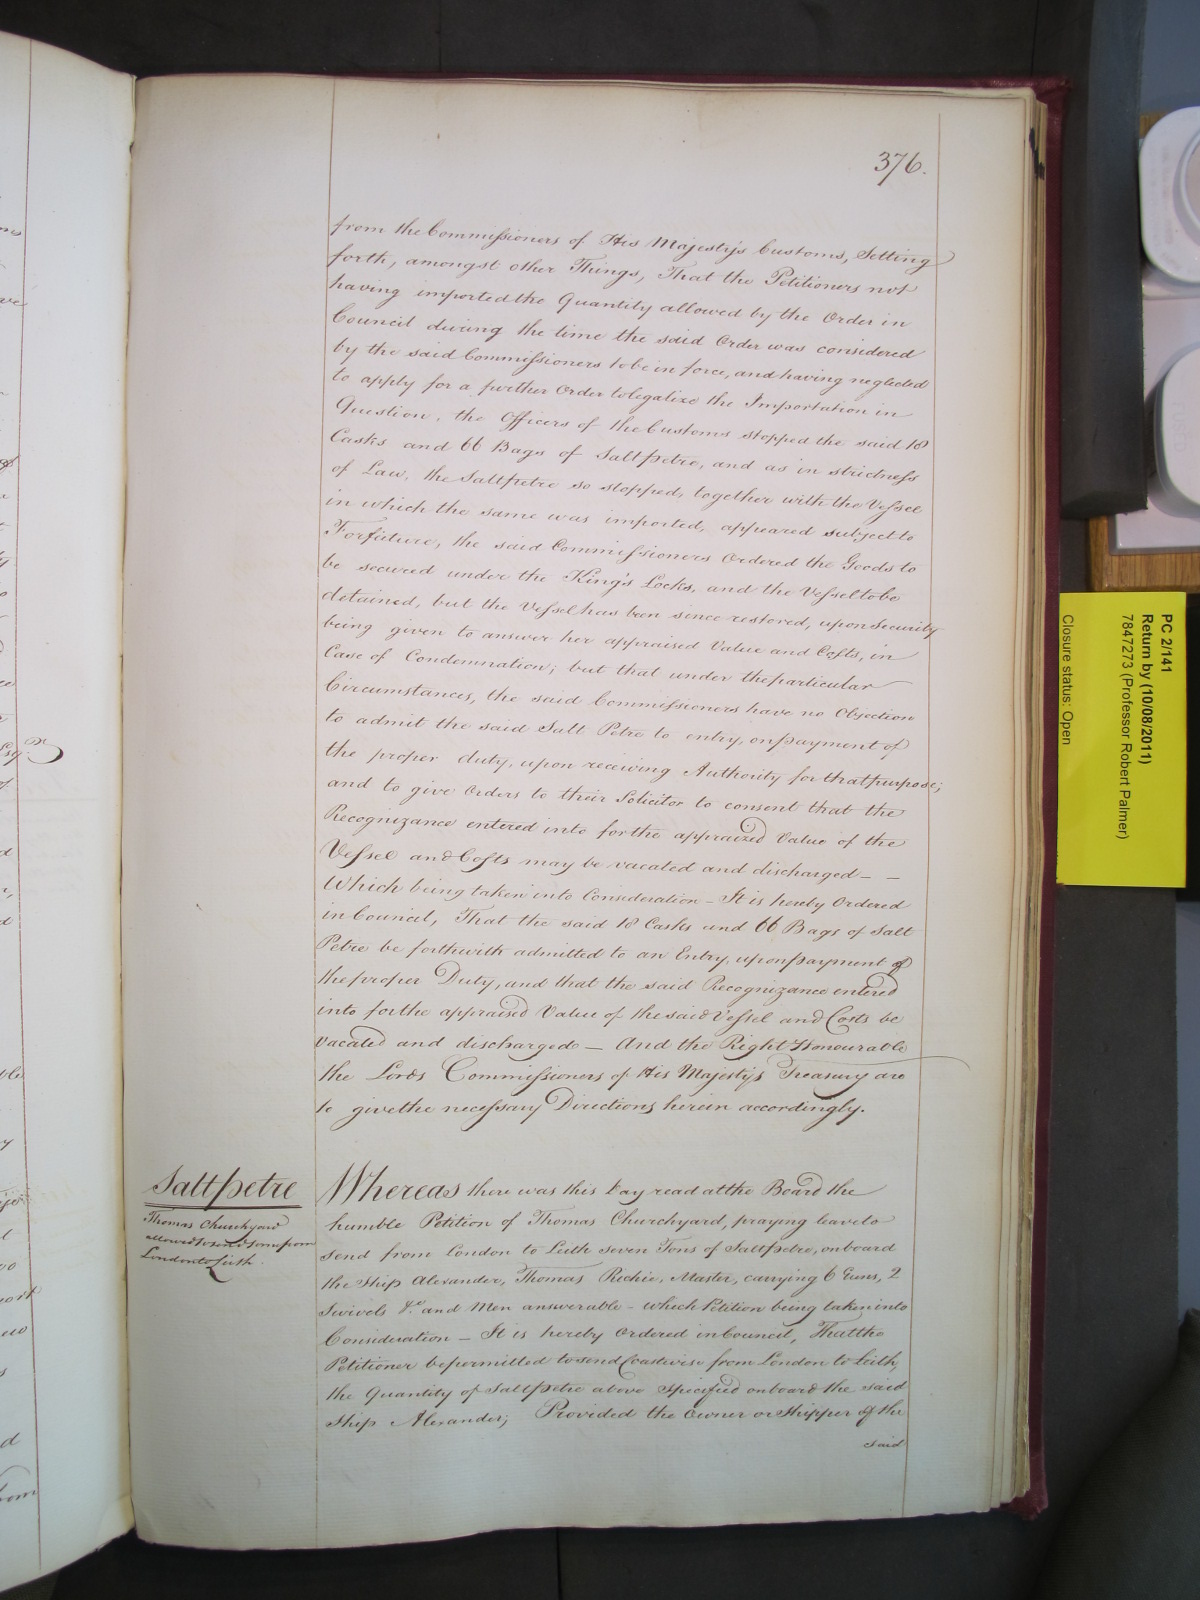 376.
from the Commissioners of His Majesty's Customs, Setting
forth, amongst other Things, That the Petitioners not
having imported the Quantity allowed by the Order in
Council during the time the said Order was considered
by the said Commissioners to be in force, and having neglected
to apply for a further Order to legalize the Importation in
Question, the Officers of the Customs stopped the said 18
Casks and 66 Bags of Saltpetre, and as in strictness
of Law, the Saltpetre so stopped, together with the Vessel
in which the same was imported, appeared subject to
Forfeiture, the said Commissioners Ordered the Goods to
be secured under the King's Locks, and the Vessel to be
detained, but the Vessel has been since restored, upon Security
being given to answer her appraised Value and Costs, in
Case of Condemnation; but that under the particular
Circumstances, the said Commissioners have no Objection
to admit the said Salt Petre to entry, on payment of
the proper duty, upon receiving Authority for that purpose;
and to give Orders to their Solicitor to consent that the
Recognizance entered into for the appraized Value of the
Vessel and Costs may be vacated and discharged - -
Which being taken into Consideration - It is hereby Ordered
in Council, That the said 18 Casks and 66 Bags of Salt
Petre be forthwith admitted to an Entry, upon payment of
the proper Duty, and that the said Recognizance entered
into for the appraised Value of the said Vessel and Costs be
vacated and discharged - And the Right Honourable
the Lords Commissioners of His Majesty's Treasury are
to give the necessary Directions herein accordingly.
Saltpetre
Thomas Churchyard
allowed to send some from
London to Leith.
Whereas there was this Day read at the Board the
humble Petition of Thomas Churchyard, praying leave to
send from London to Leith seven Tons of Saltpetre, on board
the Ship Alexander, Thomas Richie, Master, carrying 6 Guns, 2
Swivels &c. and Men answerable - which Petition being taken into
Consideration - It is hereby Ordered in Council, That the
Petitioner be permitted to send Coastwise from London to Leith,
the Quantity of Saltpetre above specified on board the said
Ship Alexander; Provided the Owner or Shipper of the
said
PC 2/141
Return by (10/08/2011)
7847273 (Professor Robert Palmer)
Closure status: Open